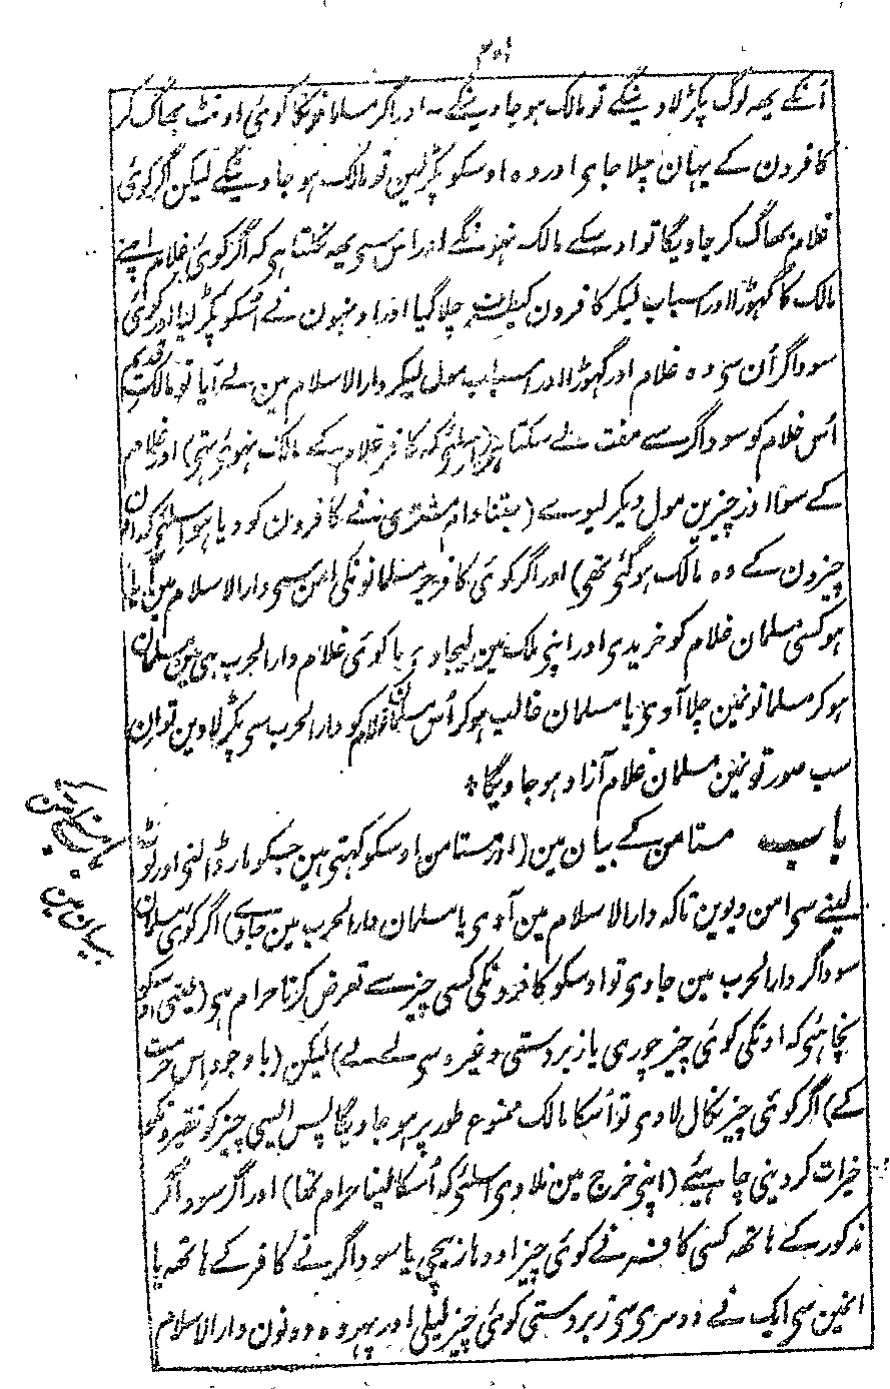 اُنکے یہہ لوگ پکڑ لاوینگے تو مالک ہو جاوینگے ۔ اور اگر مسلمانونکا کوئی اونٹ بھاگ کر
کافرون کے یہان چلا جای اور وہ اوسکو پکڑ لین تو مالک ہو جاوینگے لیکن اگر کوئی
غلام بھاگ کر جاویگا تو اوسکے مالک نہونگے اور اس سی یہہ نکلتا ہی کہ اگر کوئی غلام اپنے
مالک کا گہوڑا اور اسباب لیکر کافرون کیطرف چلا گیا اور اونہون نے اُسکو پکڑ لیا اور کوئی
سوداگر اُن سی وہ غلام اور گہوڑا اور اسباب مول لیکر دار الاسلام مین لے آیا تو مالک قدیم
اُس غلام کو سوداگر سے مفت لے سکتا ہی (اسلئی کہ کافر غلام کے مالک نہوئی تہی) اور غلام
کے سوا اور چیزین مول دیکر لیوے (جتنا دام مشتری نے کافرون کو دیا ہو اسلئی کہ ان
چیزون کے وہ مالک ہو گئی تھی) اور اگر کوئی کافر جو مسلمانونکی امن سی دار الاسلام مین آیا
ہو کسی مسلمان غلام کو خریدی اور اپنی ملک مین لیجاوی یا کوئی غلام دار الحرب ہی مین مسلمان
ہو کر مسلمانونمین چلا آوی یا مسلمان غالب ہو کر اُس مسلمان غلام کو دار الحرب سی پکڑ لاوین تو ان
سب صورتونمین مسلمان غلام آزاد ہو جاویگا *
باب مستامن کے بیان مین (اور مستامن اوسکو کہتی ہین جسکو مار ڈالنی اور لوٹ
لینے سی امن دیوین تاکہ دار الاسلام مین آوی یا مسلمان دار الحرب مین جاوے) اگر کوئی مسلمان
سوداگر دار الحرب مین جاوی تو اوسکو کافرونکی کسی چیز سے تعرض کرنا حرام ہی (یعنی اوسکو
نچاہئی کہ اونکی کوئی چیز چوری یا زبردستی وغیرہ سی لے لے) لیکن (باوجود اس حرمت
کے) اگر کوئی چیز نکال لاوی تو اُسکا مالک ممنوع طور پر ہو جاویگا پس ایسی چیز کو فقیرونکو
خیرات کر دینی چاہیئے (اپنی خرچ مین نلاوی اسلئی کہ اُسکا لینا حرام تھا) اور اگر سوداگر
مذکور کے ہاتھہ کسی کافر نے کوئی چیز اودہار بیچی یا سوداگر نے کافر کے ہاتھہ یا
انمین سی ایک نے دوسری سی زبردستی کوئی چیز لیلی اور پہر وہ دونون دار الاسلام
بیان مین